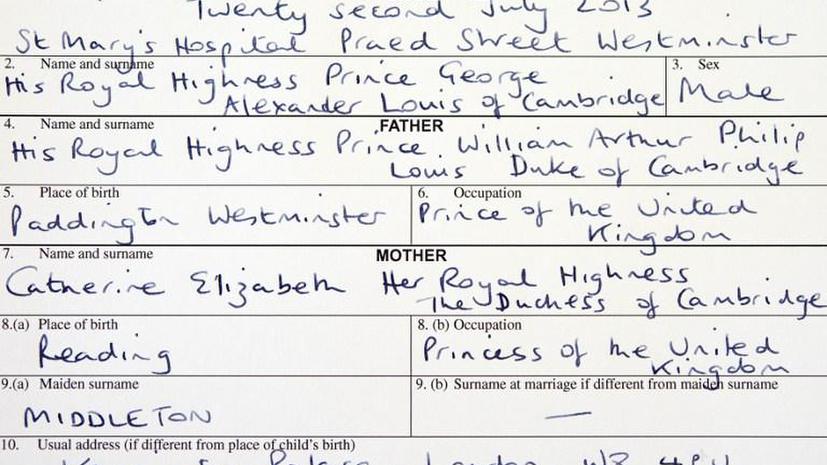 Twenty second July 2013
St Mary's Hospital Praed Street Westminster
2. Name and surname 3. Sex
His Royal Highness Prince George
Alexander Louis of Cambridge Male
4. Name and surname FATHER
His Royal Highness Prince William Arthur Philip
Louis Duke of Cambridge
5. Place of birth 6. Occupation
Paddington Westminster Prince of the United
Kingdom
7. Name and surname MOTHER
Catherine Elizabeth Her Royal Highness
The Duchess of Cambridge
8.(a) Place of birth 8. (b) Occupation
Reading Princess of the United
Kingdom
9.(a) Maiden surname 9. (b) Surname at marriage if different from maiden surname
MIDDLETON —
10. Usual address (if different from place of child's birth)
Palace London W8